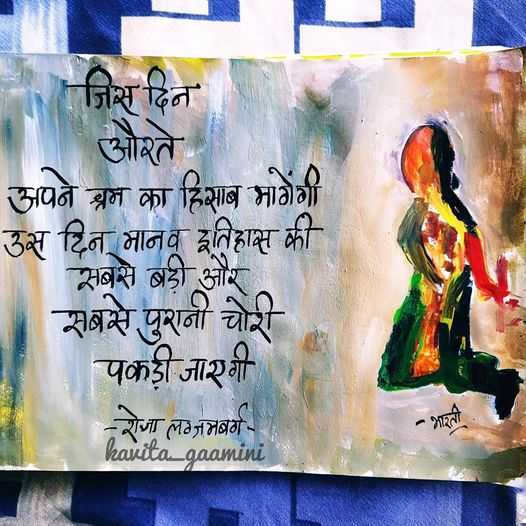 जिस दिन
औरते
अपने श्रम का हिसाब मांगेंगी
उस दिन मानव इतिहास की
सबसे बड़ी और
सबसे पुरानी चोरी
पकड़ी जाएगी
- रोजा लग्जमबर्ग -
kavita_gaamini
- भारती